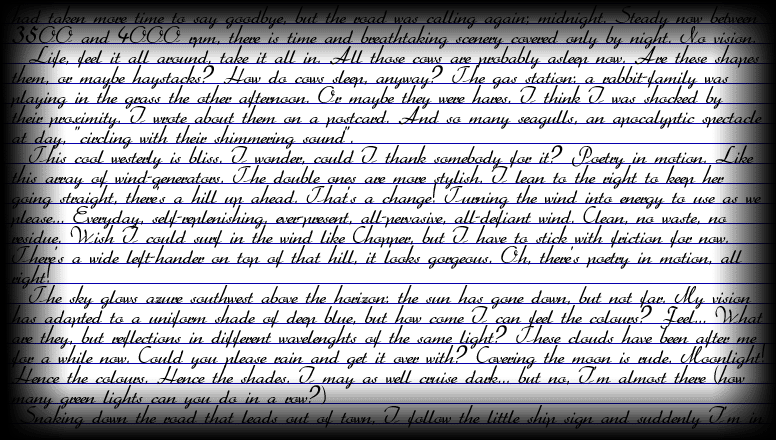 had taken more time to say goodbye, but the road was calling again; midnight. Steady now between
3500 and 4000 rpm, there is time and breathtaking scenery covered only by night. No vision.
Life, feel it all around, take it all in. All those cows are probably asleep now. Are these shapes
them, or maybe haystacks? How do cows sleep, anyway? The gas station; a rabbit-family was
playing in the grass the other afternoon. Or maybe they were hares. I think I was shocked by
their proximity. I wrote about them on a postcard. And so many seagulls, an apocalyptic spectacle
at day, "circling with their shimmering sound".
This cool westerly is bliss. I wonder, could I thank somebody for it? Poetry in motion. Like
this array of wind-generators. The double ones are more stylish. I lean to the right to keep her
going straight, there's a hill up ahead. That's a change! Turning the wind into energy to use as we
please... Everyday, self-replenishing, ever-present, all-pervasive, all-defiant wind. Clean, no waste, no
residue. Wish I could surf in the wind like Chopper, but I have to stick with friction for now.
There's a wide left-hander on top of that hill, it looks gorgeous. Oh, there's poetry in motion, all
right!
The sky glows azure southwest above the horizon; the sun has gone down, but not far. My vision
has adapted to a uniform shade of deep blue, but how come I can feel the colours? Feel... What
are they, but reflections in different wavelenghts of the same light? These clouds have been after me
for a while now. Could you please rain and get it over with? Covering the moon is rude. Moonlight!
Hence the colours. Hence the shades. I may as well cruise dark... but no, I'm almost there (how
many green lights can you do in a row?)
Snaking down the road that leads out of town. I follow the little ship sign and suddenly I'm in